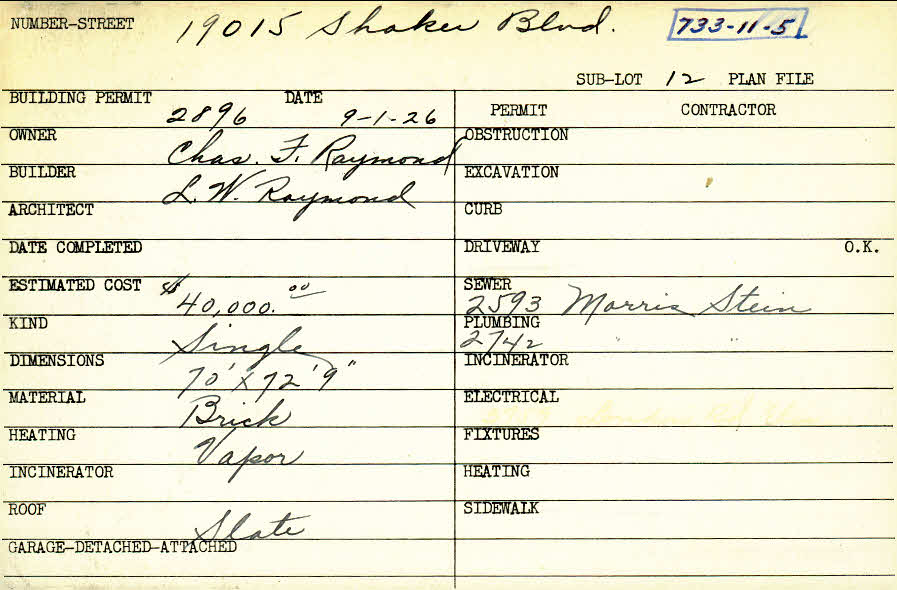 NUMBER-STREET 19015 Shaker Blvd. 733-11-5
SUB-LOT 12 PLAN FILE
BUILDING PERMIT 2896 DATE 9-1-26
PERMIT CONTRACTOR
OWNER Chas. F. Raymond
OBSTRUCTION
BUILDER L. W. Raymond
EXCAVATION
ARCHITECT
CURB
DATE COMPLETED
DRIVEWAY O.K.
ESTIMATED COST $40,000.00
SEWER 2593 Morris Stein
KIND Single
PLUMBING 2742 " "
DIMENSIONS 70' x 72' 9"
INCINERATOR
MATERIAL Brick
ELECTRICAL
HEATING Vapor
FIXTURES
INCINERATOR
HEATING
ROOF Slate
SIDEWALK
GARAGE-DETACHED-ATTACHED